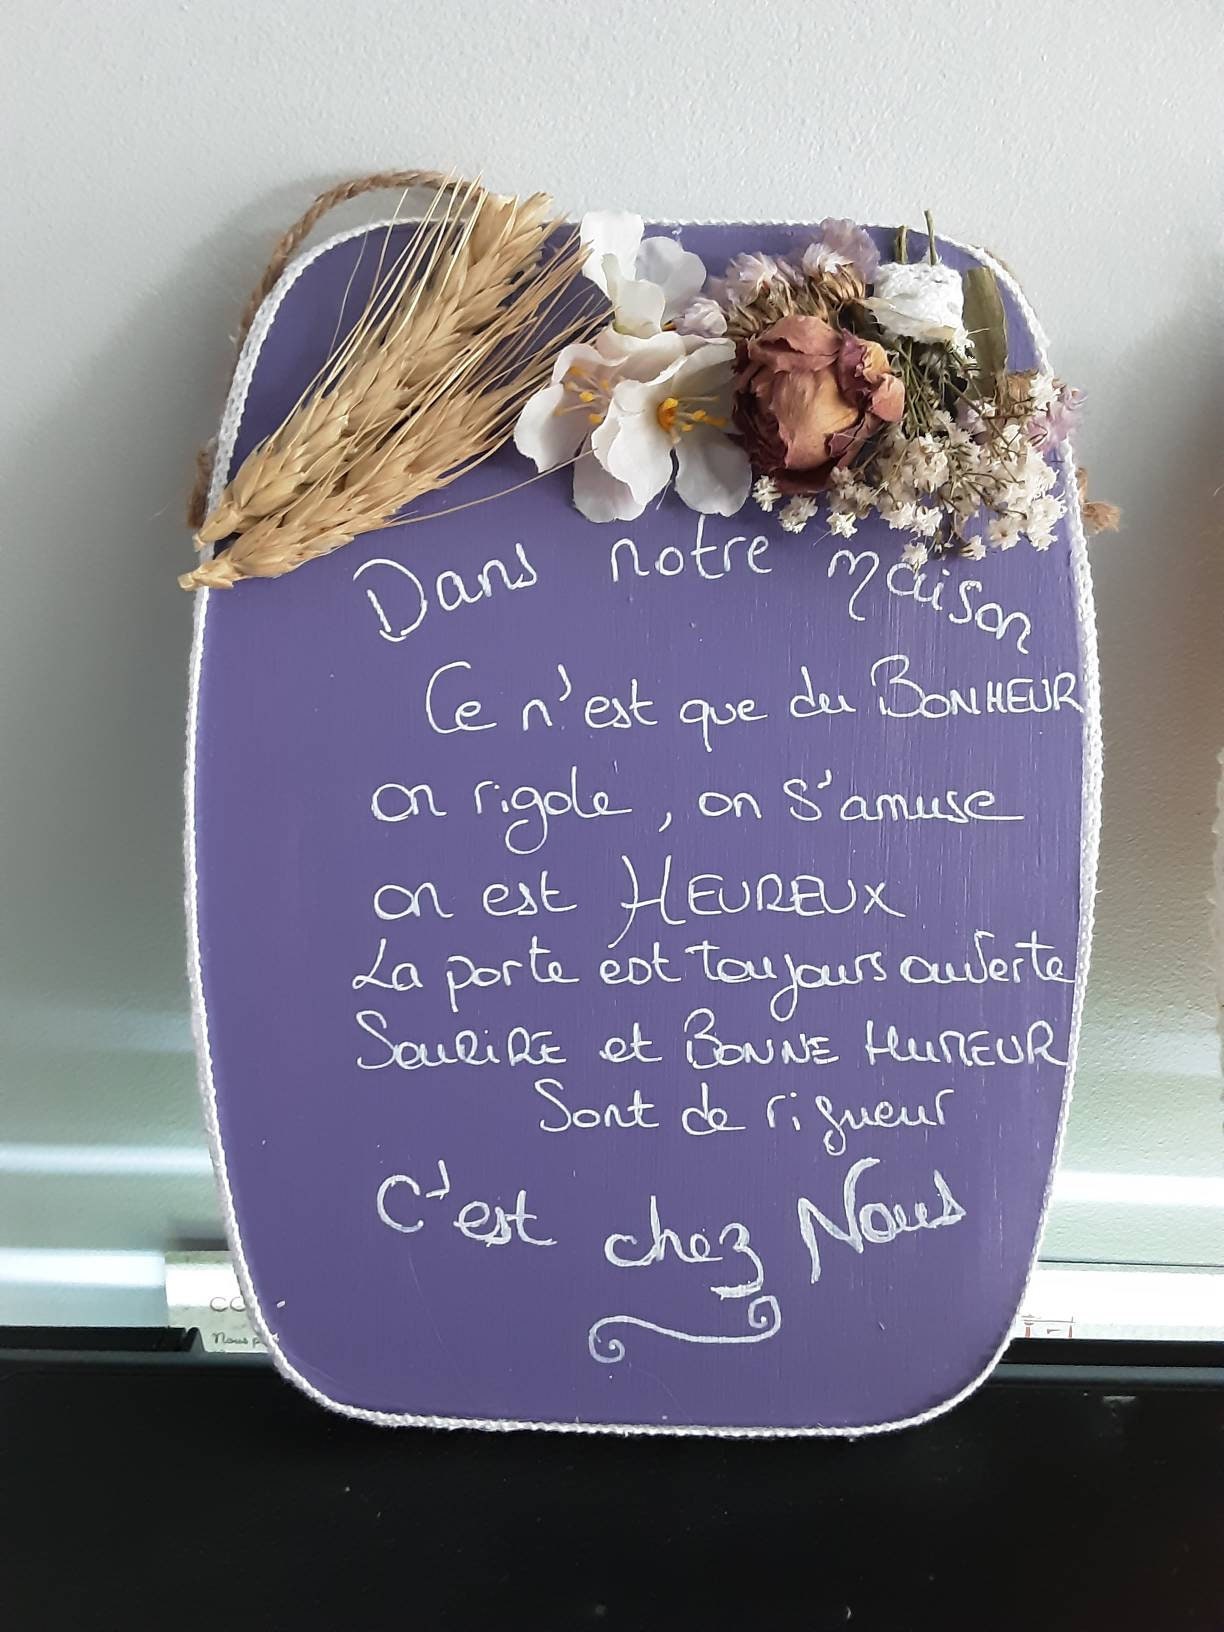 Dans notre maison
Ce n'est que du BONHEUR
on rigole, on s'amuse
on est HEUREUX
La porte est toujours ouverte
SOURIRE et BONNE HUMEUR
Sont de rigueur
C'est chez Nous
CO
Nous p